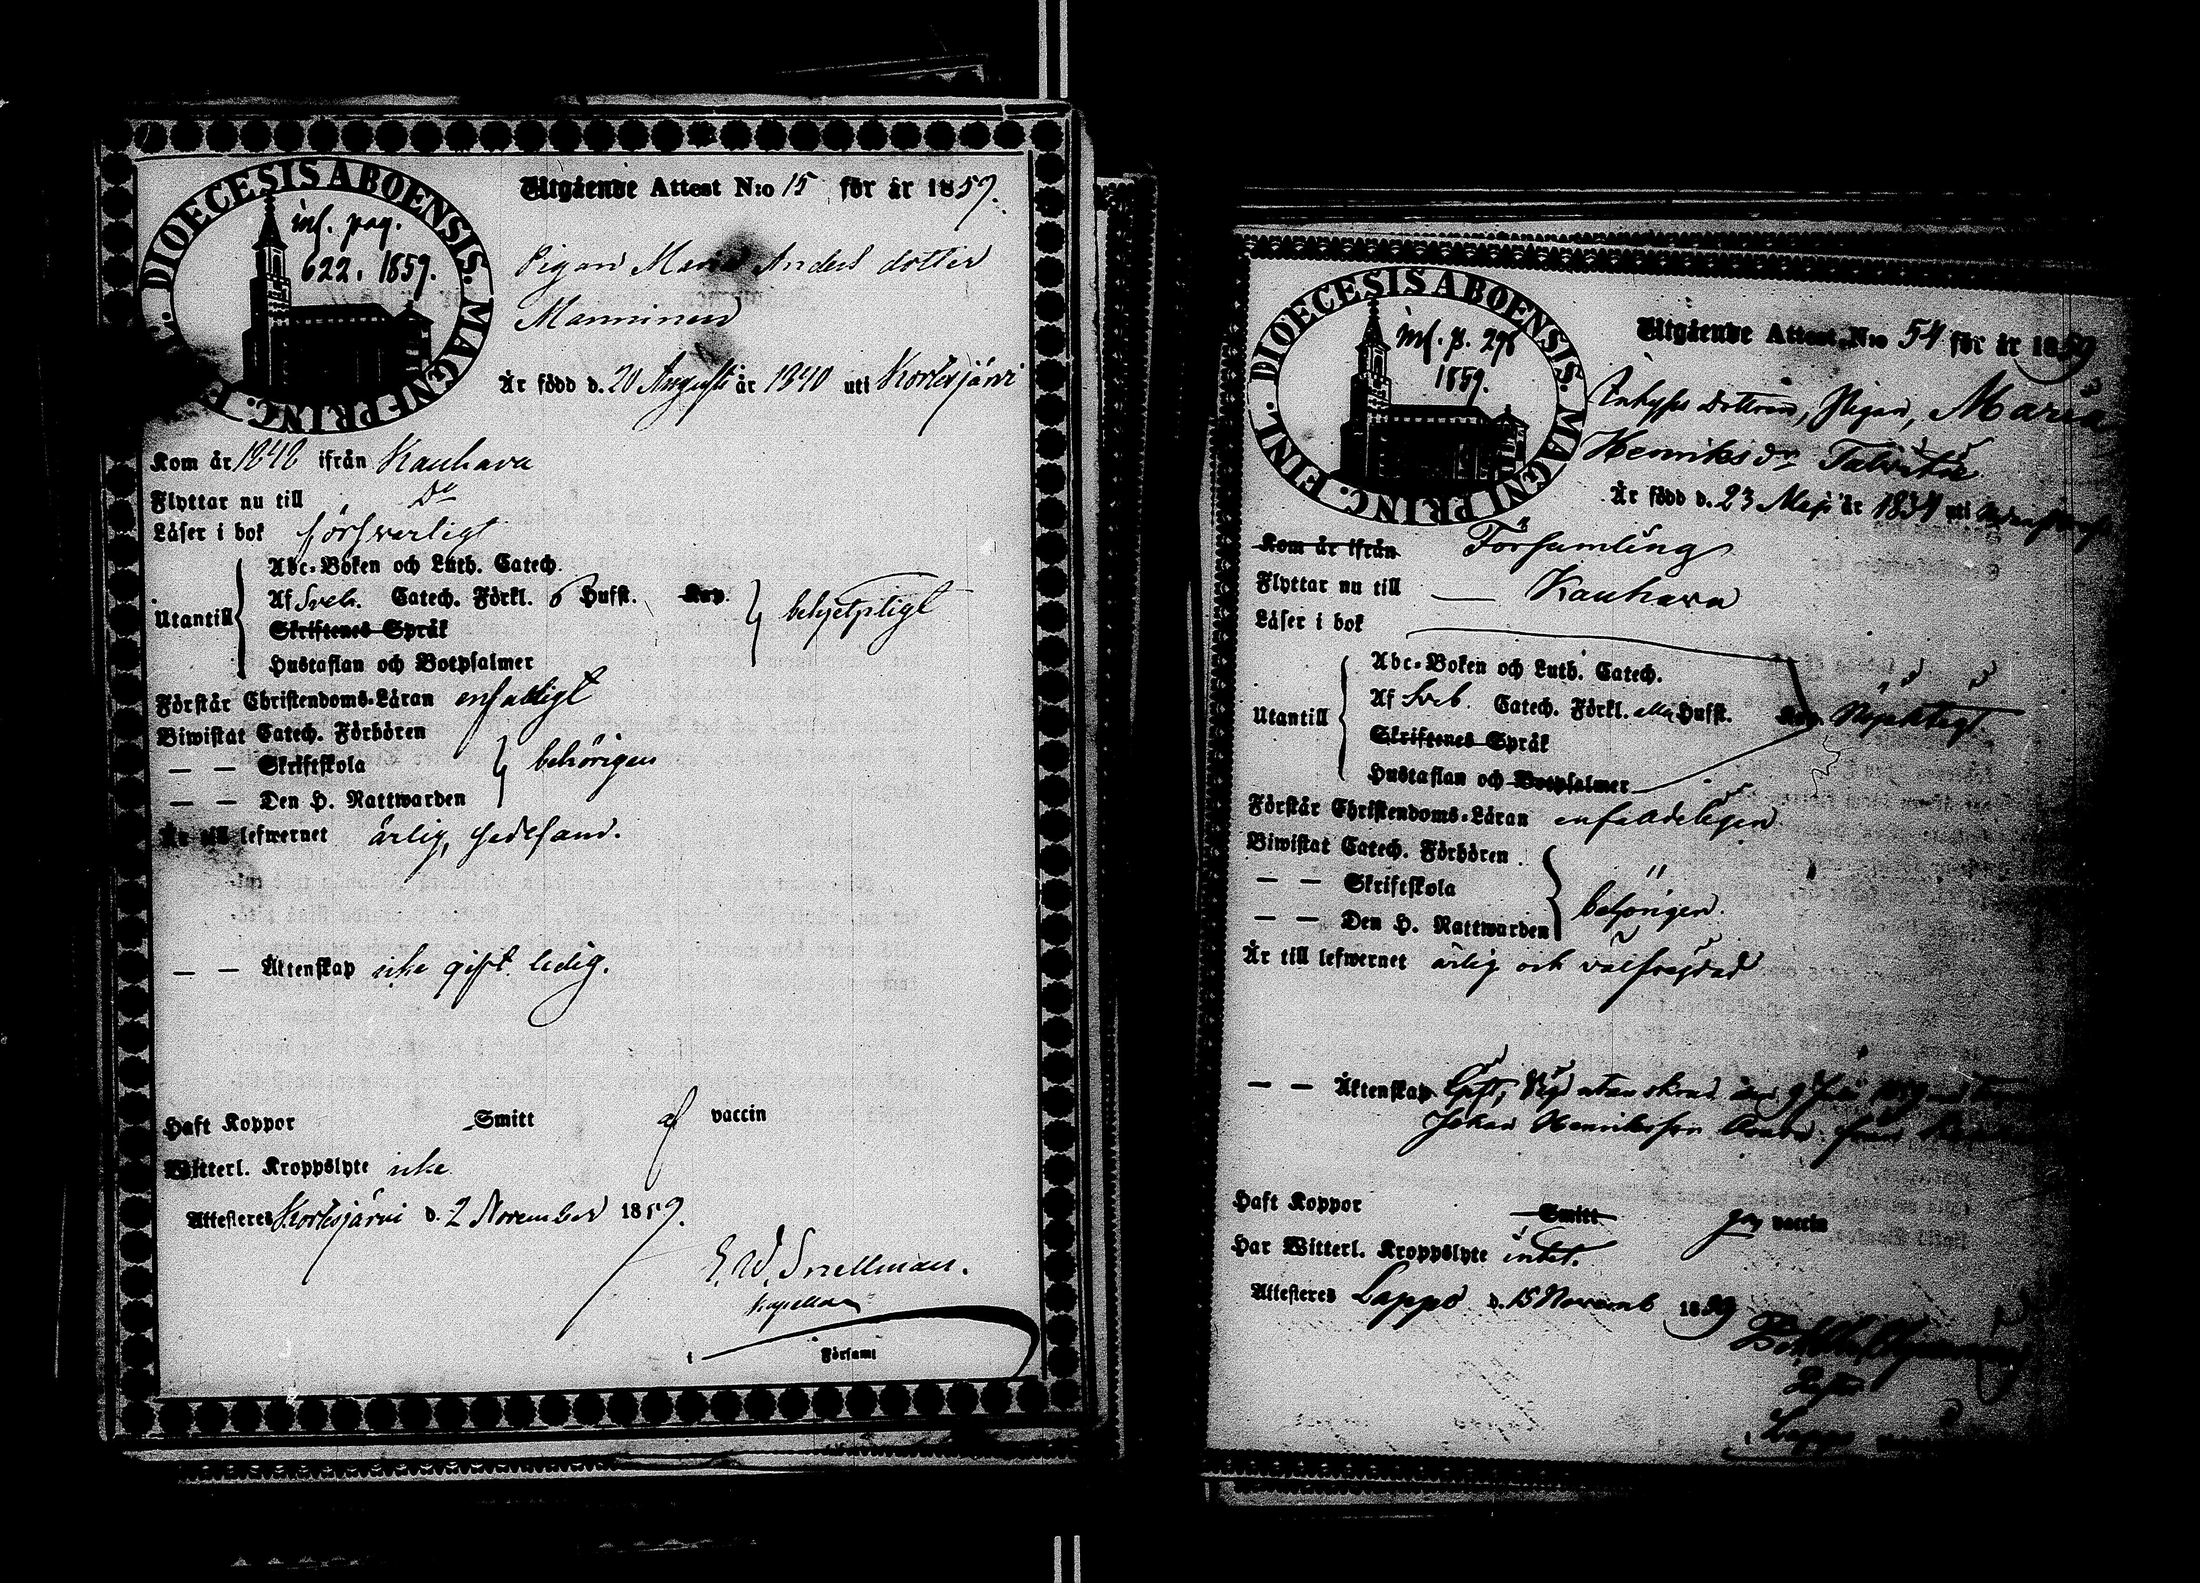 DIOECESIS ABOENSIS. MAGNI PRINC. F
inf. pag.
622. 1859.
Utgående Attest N:o 15 för år 1859.
Pigan Maria Anders dotter
Manninen
Är född d. 20 Augusti år 1840 uti Kortesjärvi
Kom år 1848 ifrån Kauhava
Flyttar nu till Do
Läser i bok försvarligt
Utantill
Abc-Boken och Luth. Catech.
Af Sveb. Catech. Förkl. o Hufst. Kap.
Skriftenes Språk
Hustaflan och Botpsalmer
behjelpligt
Förstår Christendoms-Läran enfaldigt
Biwistat Catech. Förhören
— — Skriftskola
— — Den H. Nattwarden
behörigen
Är till lefwernet ärlig, sedesam.
— — Äktenskap icke gift. ledig.
Haft Koppor Smitt af vaccin
Witterl. Kroppslyte icke
Attesteras Kortesjärvi d. 2 November 1859.
E. W. Snellman.
Kapellan
i Församl
DIOECESIS ABOENSIS. MAGNI PRINC. FINL.
inf. p. 298
1859.
Utgående Attest N:o 54 för år 1859
dottren, Pigan, Maria
Henriksdr
Är född d. 23 Maji år 1834 uti
Kom år ifrån Församling
Flyttar nu till — Kauhava
Läser i bok
Utantill
Abc-Boken och Luth. Catech.
Af Sveb. Catech. Förkl. eller Hufst. Kap. Nöjaktigt
Skriftenes Språk
Hustaflan och Botpsalmer
Förstår Christendoms-Läran enfaldeligen
Biwistat Catech. Förhören
— — Skriftskola
— — Den H. Nattwarden
behörigen.
Är till lefwernet ärlig och välfrejdad
— — Äktenskap
Johan Henriksson från
Haft Koppor Smitt genom vaccin
Har Witterl. Kroppslyte intet.
Attesteras Lappo d. 15 Novemb 1859
i Lappo